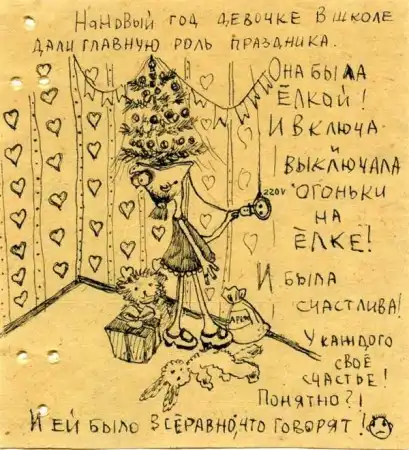 НА НОВЫЙ ГОД ДЕВОЧКЕ В ШКОЛЕ
ДАЛИ ГЛАВНУЮ РОЛЬ ПРАЗДНИКА.
ОНА БЫЛА
ЁЛКОЙ!
И ВКЛЮЧА-
И
ВЫКЛЮЧАЛА
ОГОНЬКИ
НА
ЁЛКЕ!
220V
И БЫЛА
СЧАСТЛИВА!
У КАЖДОГО
СВОЁ
СЧАСТЬЕ!
ПОНЯТНО?!
И ЕЙ БЫЛО ВСЁРАВНО, ЧТО ГОВОРЯТ!